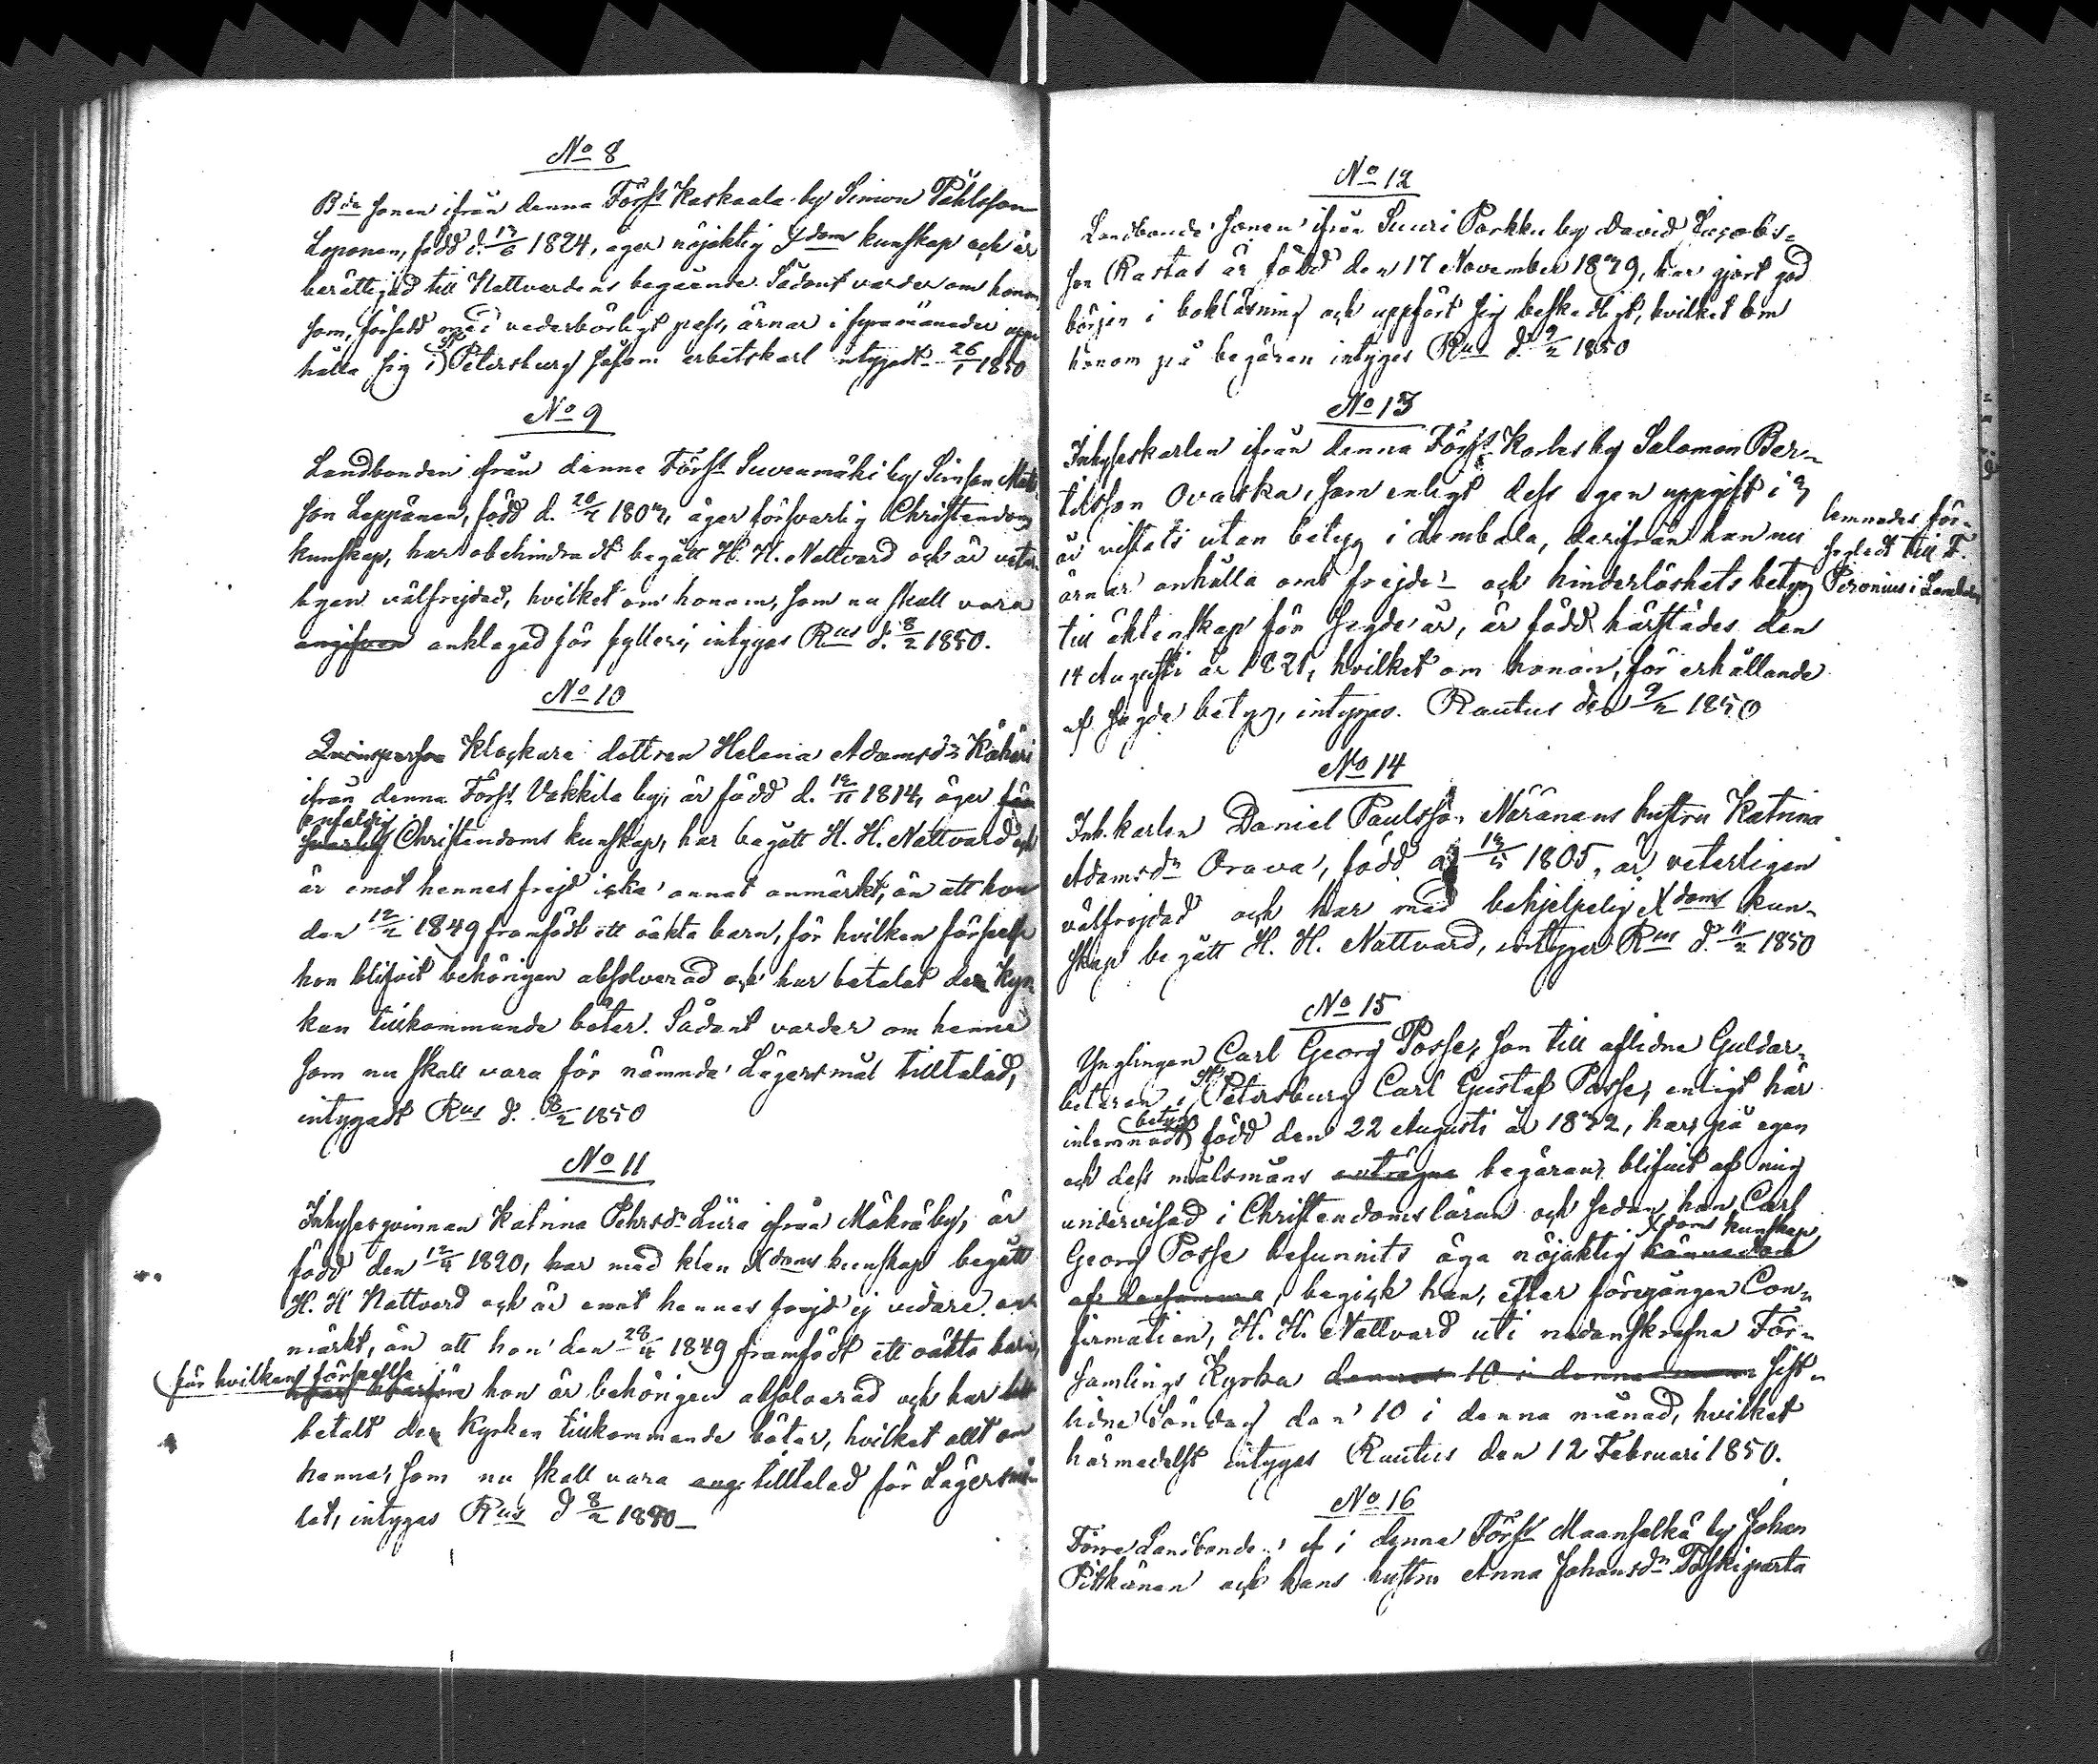 No 8
Bde sonen ifrån denna Förs:t Kaskaala by Simon Påhlsson
Loponen, född d. 13/6 1824, äger nöjaktig Xdoms kunskap och är
berättigad till Nattvardens begående. Sådant varder om honom,
som, försedd med vederbörligt pass, ärnar i fyra månader uppe-
hålla sig i St Petersburg såsom arbetskarl intygadt 26/1 1850
No 9
Landbonden ifrån denna Förs:t Suvenmäki by Simon Mats-
son Leppänen, född d. 20/2 1802, äger försvarlig Christendoms
kunskap, har obehindradt begått H. H. Nattvard och är veter-
ligen välfrejdad, hvilket om honom, som nu skall vara
angifven anklagad för fylleri, intygas Rus d. 8/2 1850.
No 10
Qvinsperson Klockare dottren Helena Adamsdr Kähäri
ifrån denna Förs:t Vakkila by, är född d. 12/11 1814, äger för
enfaldig
svarlig Christendoms kunskap, har begått H. H. Nattvard och
är emot hennes frejd icke annat anmärkt, än att hon
den 12/2 1849 framfödt ett oäkta barn, för hvilken förseelse
hon blifvit behörigen absolverad och har betalat den Kyr-
kan tillkommande böter. Sådant varder om henne
som nu skall vara för nämnde Lägersmål tilltalad,
intygadt Rus d. 8/2 1850
No 11
Inhysesqvinnan Katrina Pehrsdr Liira ifrån Mäkrä by, är
född den 12/4 1820, har med klen Xdoms kunskap begått
H. H Nattvard och är emot hennes frejd ej vidare an-
märkt, än att hon den 28/4 1849 framfödt ett oäkta barn,
för hvilken förseelse
hon är behörigen absolverad och har
betalt den Kyrkan tillkommande böter, hvilket allt om
henne, som nu skall vara ang. tilltalad för Lägersmå-
let, intygas Rus d 8/2 1850
No 12
Landbonde sonen ifrån Suuri Porkku by David Jacobs-
son Rastas är född den 17 November 1829, har gjort god
början i bokläsning och uppfört sig beskedligt, hvilket om
honom på begäran intygas Rus d. 9/2 1850
No 13
Inhyseskarlen ifrån denna Förs:t Korles by Salomon Ber-
tilsson Ovaska, som enligt dess egen uppgift i 3
år vistats utan betyg i Lembala, derifrån han nu
ärnar anhålla om frejde- och hinderlöshets betyg
till äktenskap för sagde år, är född härstädes den
14 Augusti år 1821, hvilket om honom, för erhållande
af sagde betyg, intygas. Rautus den 9/2 1850
lemnades för-
segladt till F.
Peronius i Lembala
No 14
Inh. karlen Daniel Paulsson Näränens hustru Katrina
Adamsdr Orava, född d 13/5 1805, är veterligen
välfrejdad och har med behjelpelig Xdoms kun-
skap begått H. H. Nattvard, intygar Rus d. 11/2 1850
No 15
Ynglingen Carl Georg Posse, son till aflidne Guldar-
betaren i St Petersburg Carl Gustaf Posse, enligt här
betyg
inlemnadt född den 22 Augusti år 1832, har, på egen
och dess målsmans enträgna begäran, blifvit af mig
undervisad i Christendomsläran och sedan han Carl
Xdoms kunskap,
Georg Posse befunnits äga nöjaktig kännedom
af densamma, begick han, efter föregången Con-
firmation, H. H. Nattvard uti nedanskrefna För-
samlings Kyrka dennes 10 i denna sist-
lidne Söndag den 10 i denna månad, hvilket
härmedelst intygas Rautus den 12 Februari 1850.
No 16
Förre Landbonden af i denna Förs:t Maanselkä by Johan
Pitkänen och hans hustru Anna Johansdr Paskiparta